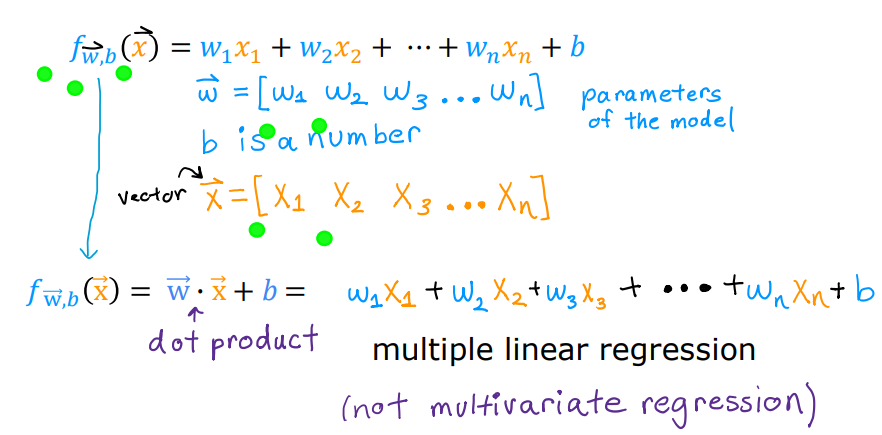 f_w⃗,b(x⃗) = w₁x₁ + w₂x₂ + ⋯ + wₙxₙ + b
w⃗ = [w₁ w₂ w₃ ... wₙ]
parameters
of the model
b is a number
vector x⃗ = [x₁ x₂ x₃ ... xₙ]
f_w⃗,b(x⃗) = w⃗ · x⃗ + b = w₁x₁ + w₂x₂ + w₃x₃ + ••• + wₙxₙ + b
dot product
multiple linear regression
(not multivariate regression)